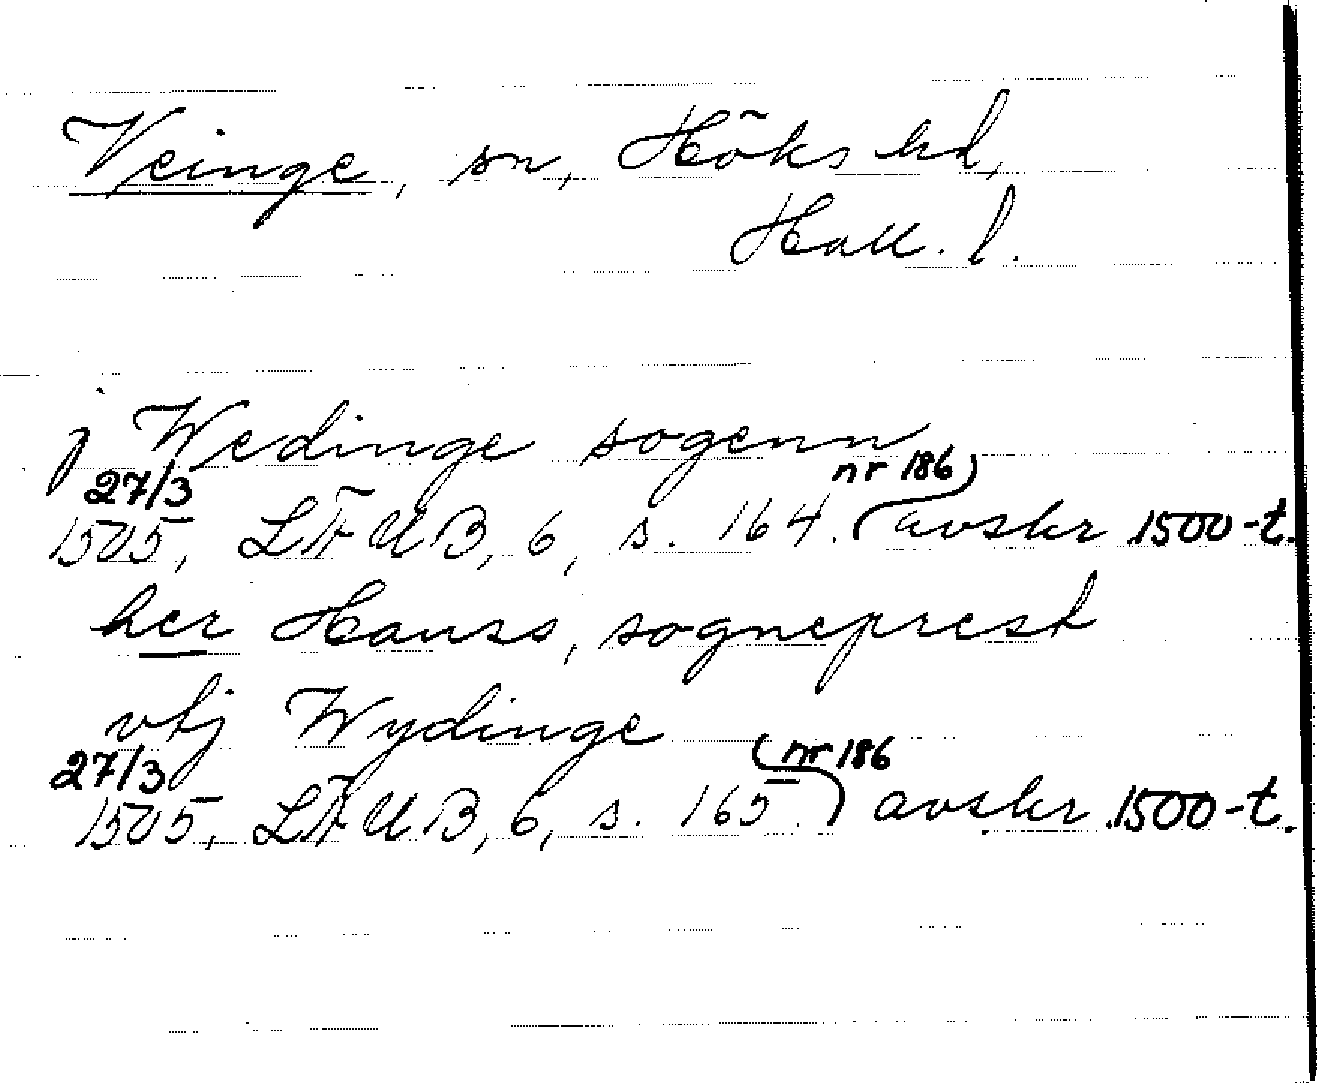 Veinge, sn, Höks hd,
Hall. l.
j Wedinge sogenn
27/3 nr 186
1505, LÄUB, 6, s. 164. avskr 1500-t.
her Hanss, sogneprest
vtj Wydinge
27/3 nr 186
1505, LÄUB, 6, s. 165. avskr 1500-t.